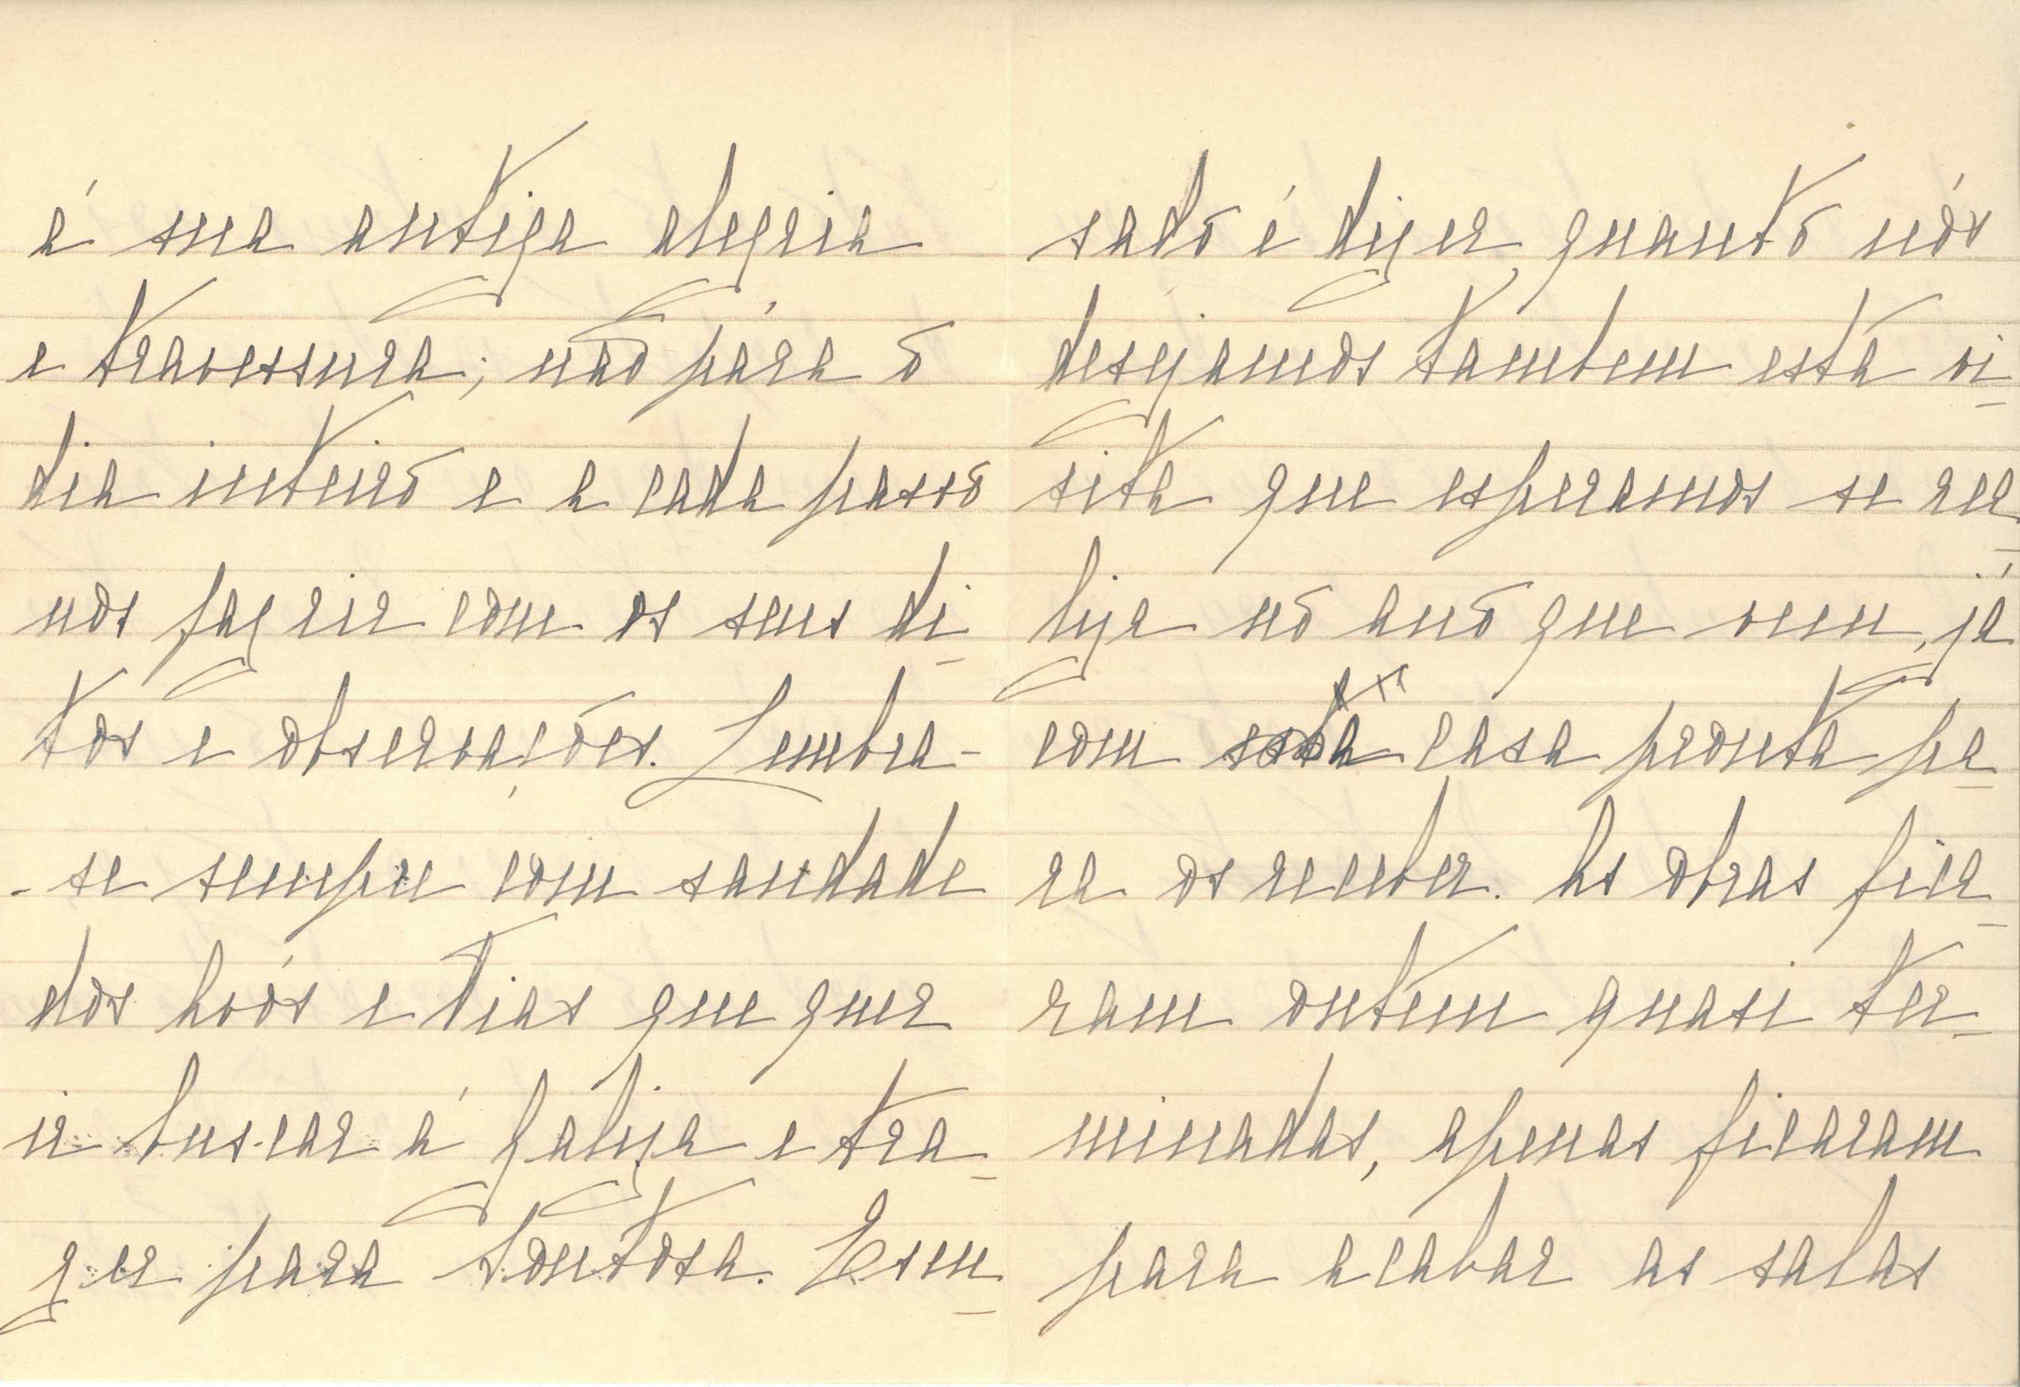 á sua antiga alegria
e travessura; não pára o
dia inteiro e a cada passo
nos faz rir com os seus di_
tos e observações. Lembra-
-se sempre com saudade
dos Avós e Tias que quer
ir buscar á Galiza e tra_
zer para Bontosa. Escu_
sado é dizer, quanto nós
desejamos tambem esta vi_
sita que esperamos se rea_
liza no ano que vem, já
com esta casa pronta pa_
ra os receber. As obras fica_
ram ontem quasi ter_
minadas, apenas ficaram
para acabar as salas